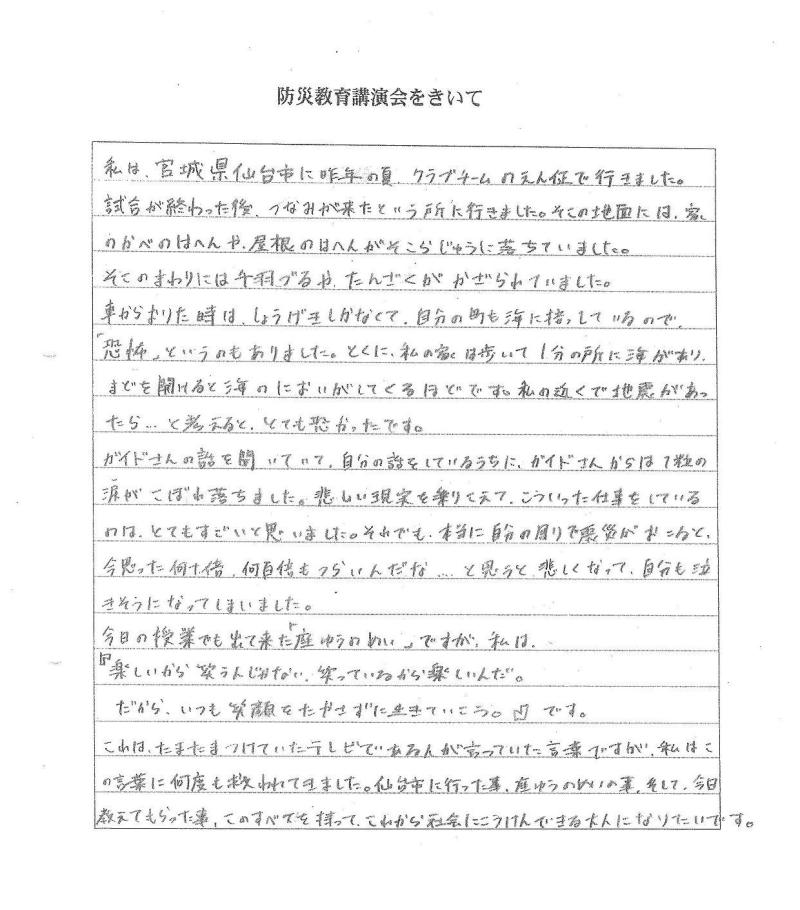 防災教育講演会をきいて
私は、宮城県仙台市に昨年の夏、クラブチームのえん征で行きました。
試合が終わった後、つなみが来たという所に行きました。そこの地面には、家
のかべのはへんや、屋根のはへんがそこらじゅうに落ちていました。
そこのまわりには千羽づるや、たんざくがかざられていました。
車からおりた時は、しょうげきしかなくて、自分の町も海に接しているので、
「恐怖」というのもありました。とくに、私の家は歩いて1分の所に海があり、
まどを開けると海のにおいがしてくるほどです。私の近くで地震があっ
たら…と考えると、とても恐かったです。
ガイドさんの話を聞いていて、自分の話をしているうちに、ガイドさんからは1粒の
涙がこぼれ落ちました。悲しい現実を乗りこえて、こういった仕事をしている
のは、とてもすごいと思いました。それでも、本当に自分の周りで震災がおこると、
今思った何十倍、何百倍もつらいんだな…と思うと悲しくなって、自分も泣
きそうになってしまいました。
今日の授業でも出て来た「座ゆうのめい」ですが、私は、
『楽しいから笑うんじゃない、笑っているから楽しいんだ。
だから、いつも笑顔をたやさずに生きていこう。』です。
これは、たまたまつけていたテレビである人が言っていた言葉ですが、私はこ
の言葉に何度も救われてきました。仙台市に行った事、座ゆうのめいの事、そして、今日
教えてもらった事、このすべてを持って、これから社会にこうけんできる大人になりたいです。